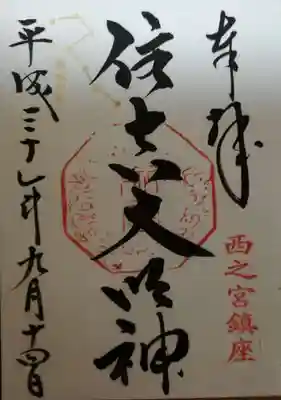 奉拝
西之宮鎮座
住吉大明神
平成 年九月十四日